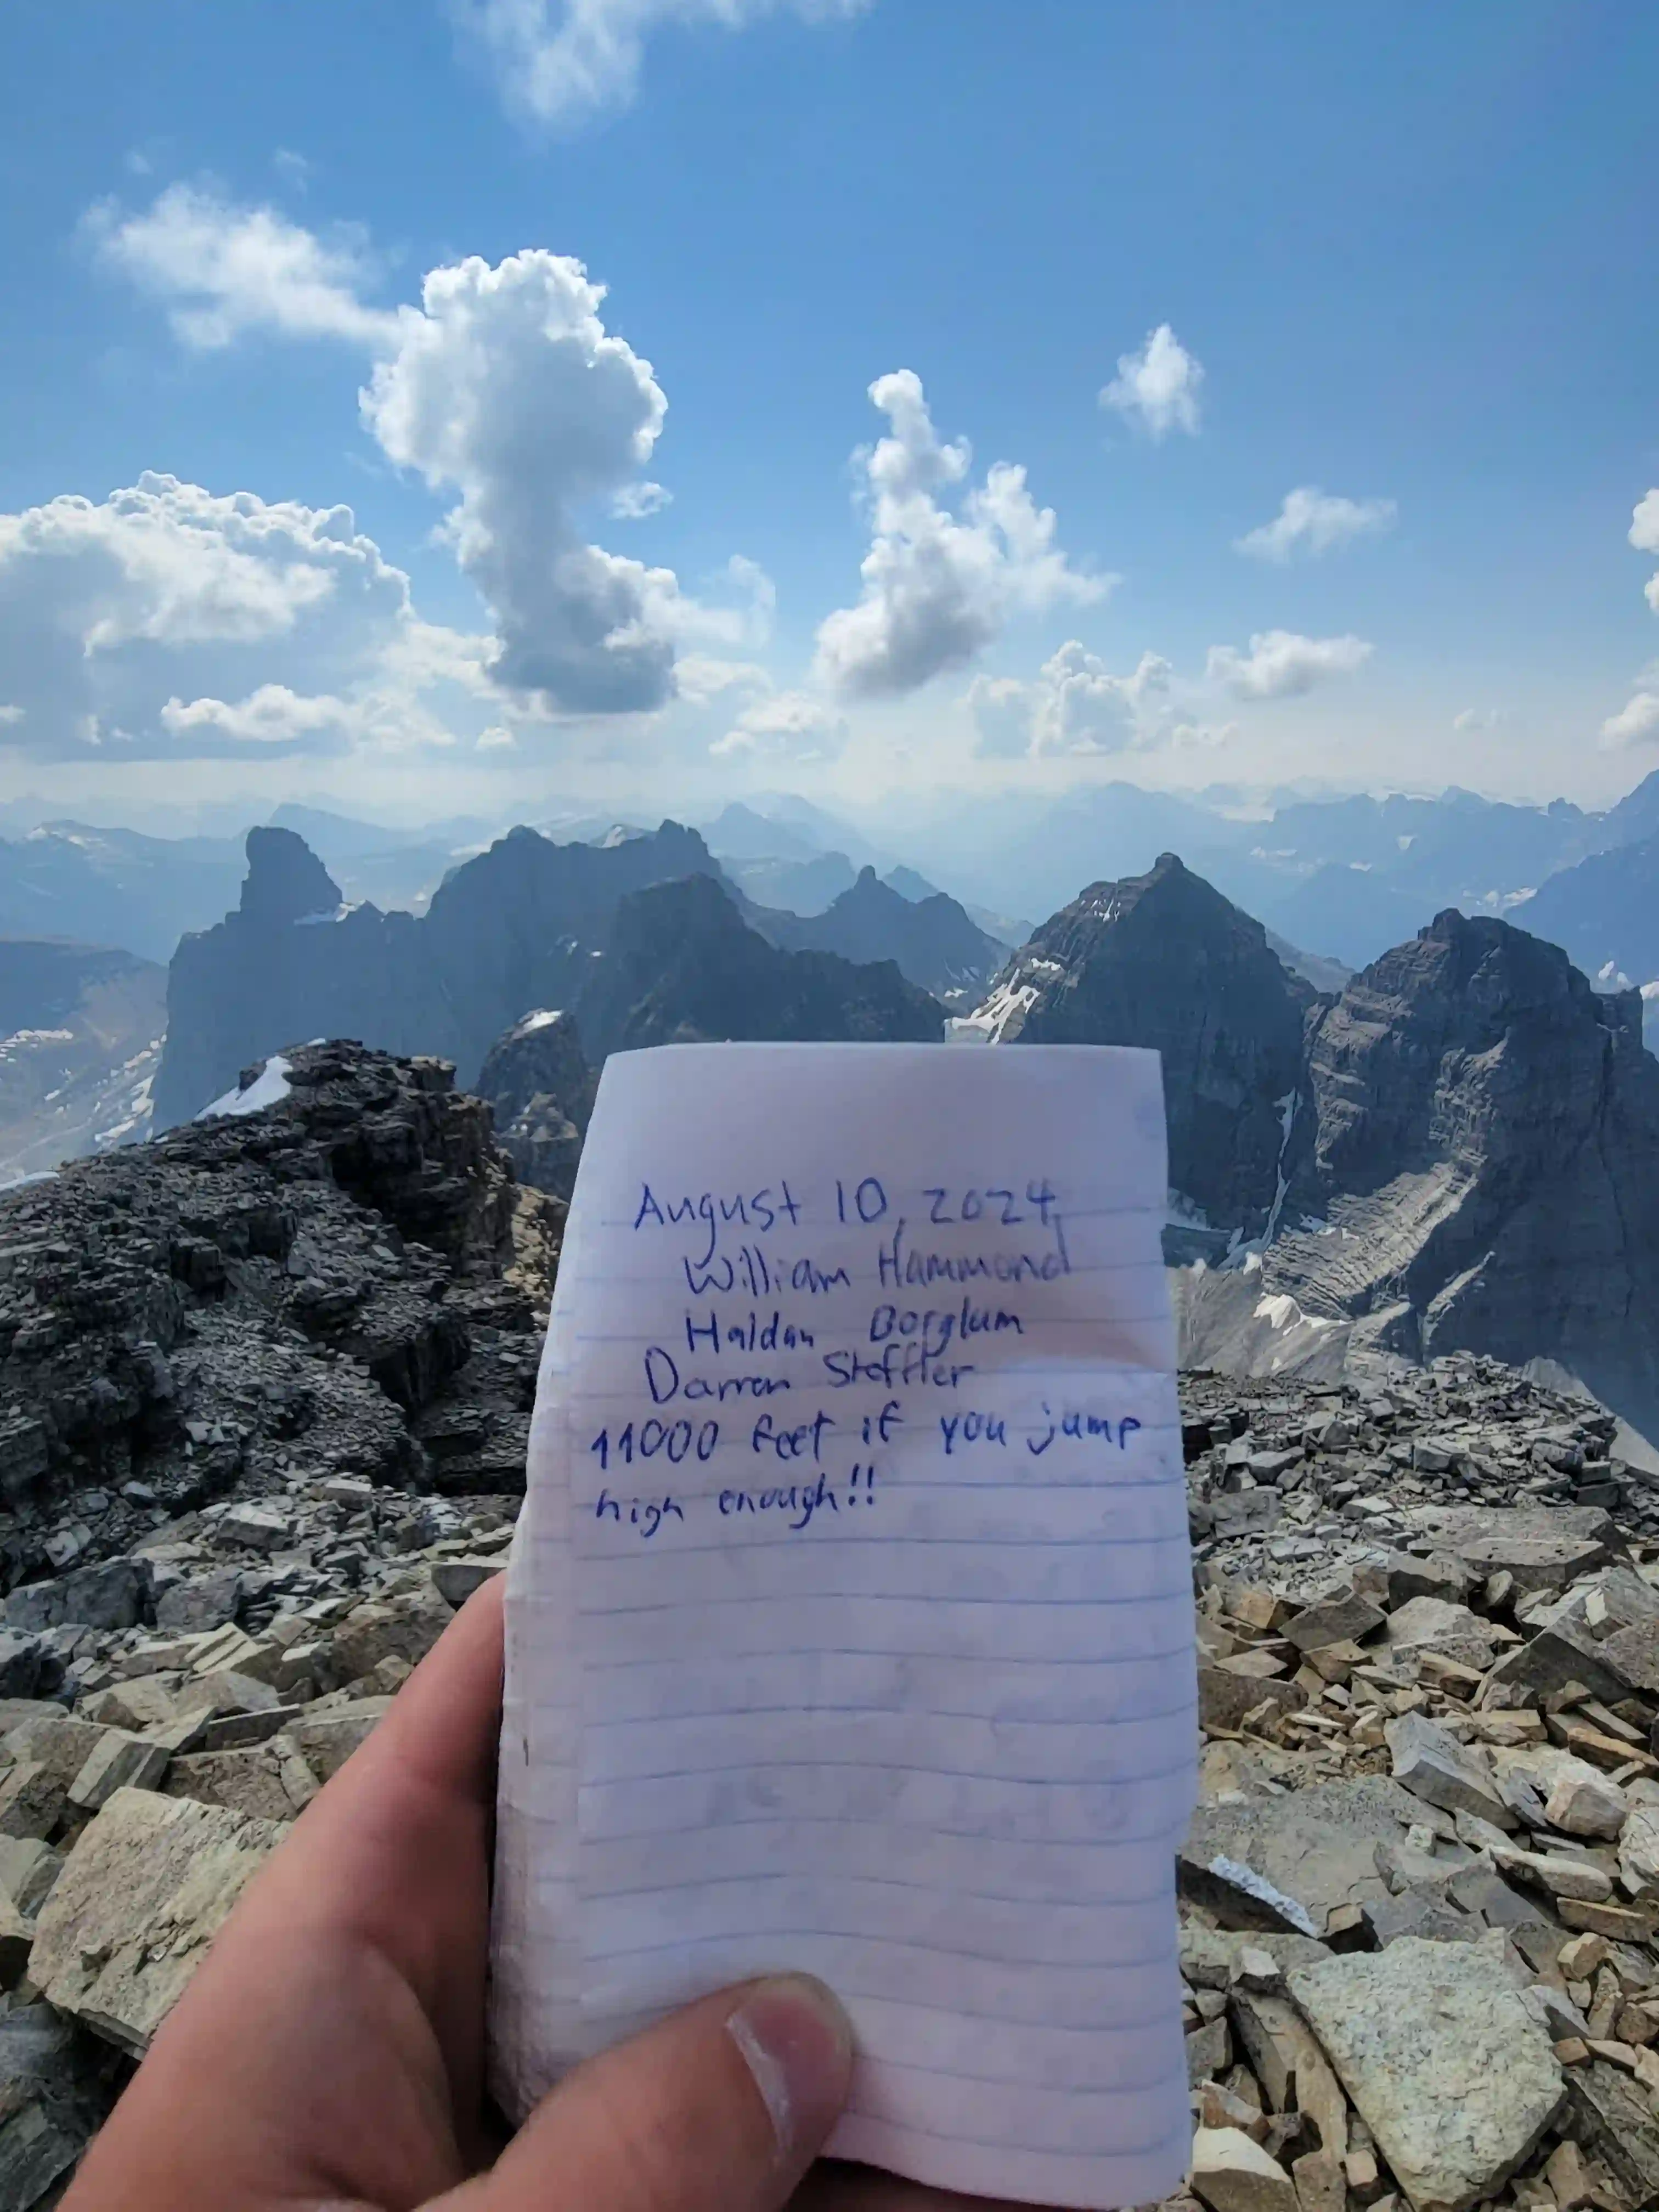 August 10, 2024
William Hammond
Haldan Borglum
Darren Steffler
11000 feet if you jump
high enough!!